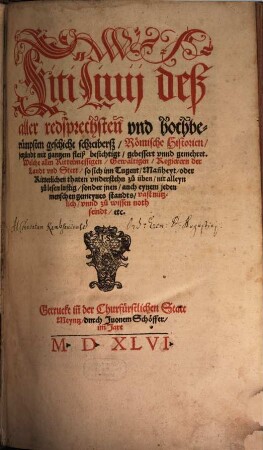 Titi Liuij deß
aller redsprechsten vnd hochbe-
rümpsten geschicht schreibersz / Römische Historien /
jetzundt mit gantzem fleiß besichtigt / gebessert vnnd gemehret.
Welche allen Keyermessigen / Gewaltigen / Regierern der
Landt vnd Stett / so sich im Tugent / Manheyt / oder
Ritterlichen thaten vnderstehn zů üben / nit alleyn
zů lesen lustig / sonder jnen / auch eynem jeden
menschen gemeynes standts / vast nütz-
lich / vnnd zů wissen noth
seindt / etc.
Getruckt in der Churfürstlichen Statt
Meyntz / durch Juonem Schöffer /
im Jare
M D XLVI